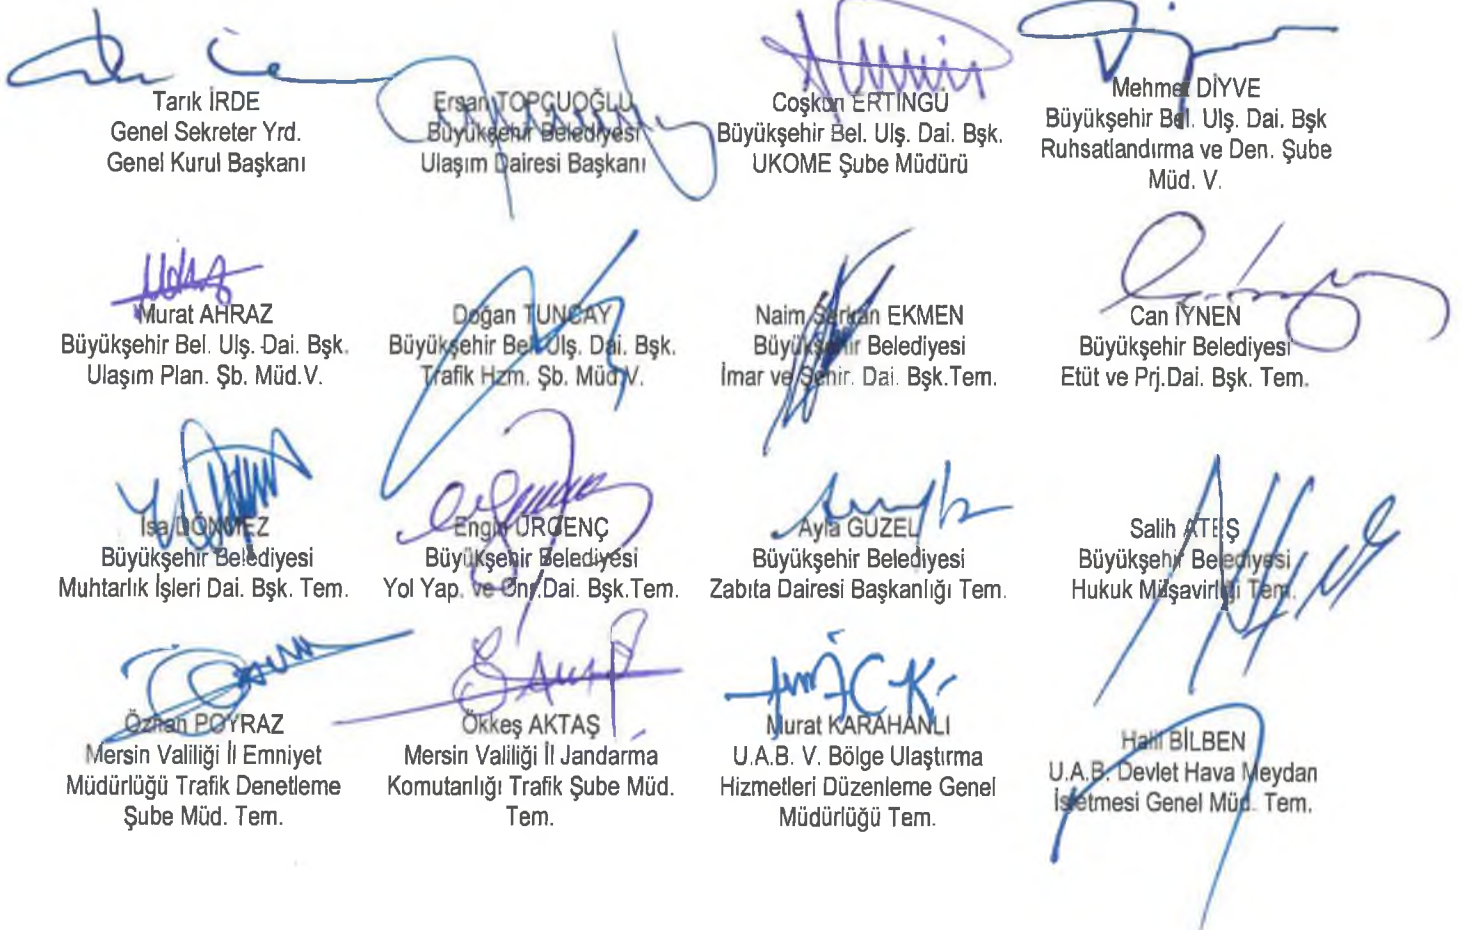 Tarık İRDE
Genel Sekreter Yrd.
Genel Kurul Başkanı
Ersan TOPÇUOĞLU
Büyükşehir Belediyesi
Ulaşım Dairesi Başkanı
Coşkun ERTİNGÜ
Büyükşehir Bel. Ulş. Dai. Bşk.
UKOME Şube Müdürü
Mehmet DİYVE
Büyükşehir Bel. Ulş. Dai. Bşk
Ruhsatlandırma ve Den. Şube
Müd. V.
Murat AHRAZ
Büyükşehir Bel. Ulş. Dai. Bşk.
Ulaşım Plan. Şb. Müd.V.
Doğan TUNCAY
Büyükşehir Bel. Ulş. Dai. Bşk.
Trafik Hzm. Şb. Müd.V.
Naim Serkan EKMEN
Büyükşehir Belediyesi
İmar ve Şehir. Dai. Bşk.Tem.
Can İYNEN
Büyükşehir Belediyesi
Etüt ve Prj.Dai. Bşk. Tem.
İsa DÖNMEZ
Büyükşehir Belediyesi
Muhtarlık İşleri Dai. Bşk. Tem.
Engin ÜRGENÇ
Büyükşehir Belediyesi
Yol Yap. ve Onr.Dai. Bşk.Tem.
Ayla GÜZEL
Büyükşehir Belediyesi
Zabıta Dairesi Başkanlığı Tem.
Salih ATEŞ
Büyükşehir Belediyesi
Hukuk Müşavirliği Tem.
Özhan POYRAZ
Mersin Valiliği İl Emniyet
Müdürlüğü Trafik Denetleme
Şube Müd. Tem.
Ökkeş AKTAŞ
Mersin Valiliği İl Jandarma
Komutanlığı Trafik Şube Müd.
Tem.
Murat KARAHANLI
U.A.B. V. Bölge Ulaştırma
Hizmetleri Düzenleme Genel
Müdürlüğü Tem.
Halil BİLBEN
U.A.B. Devlet Hava Meydan
İşletmesi Genel Müd. Tem.